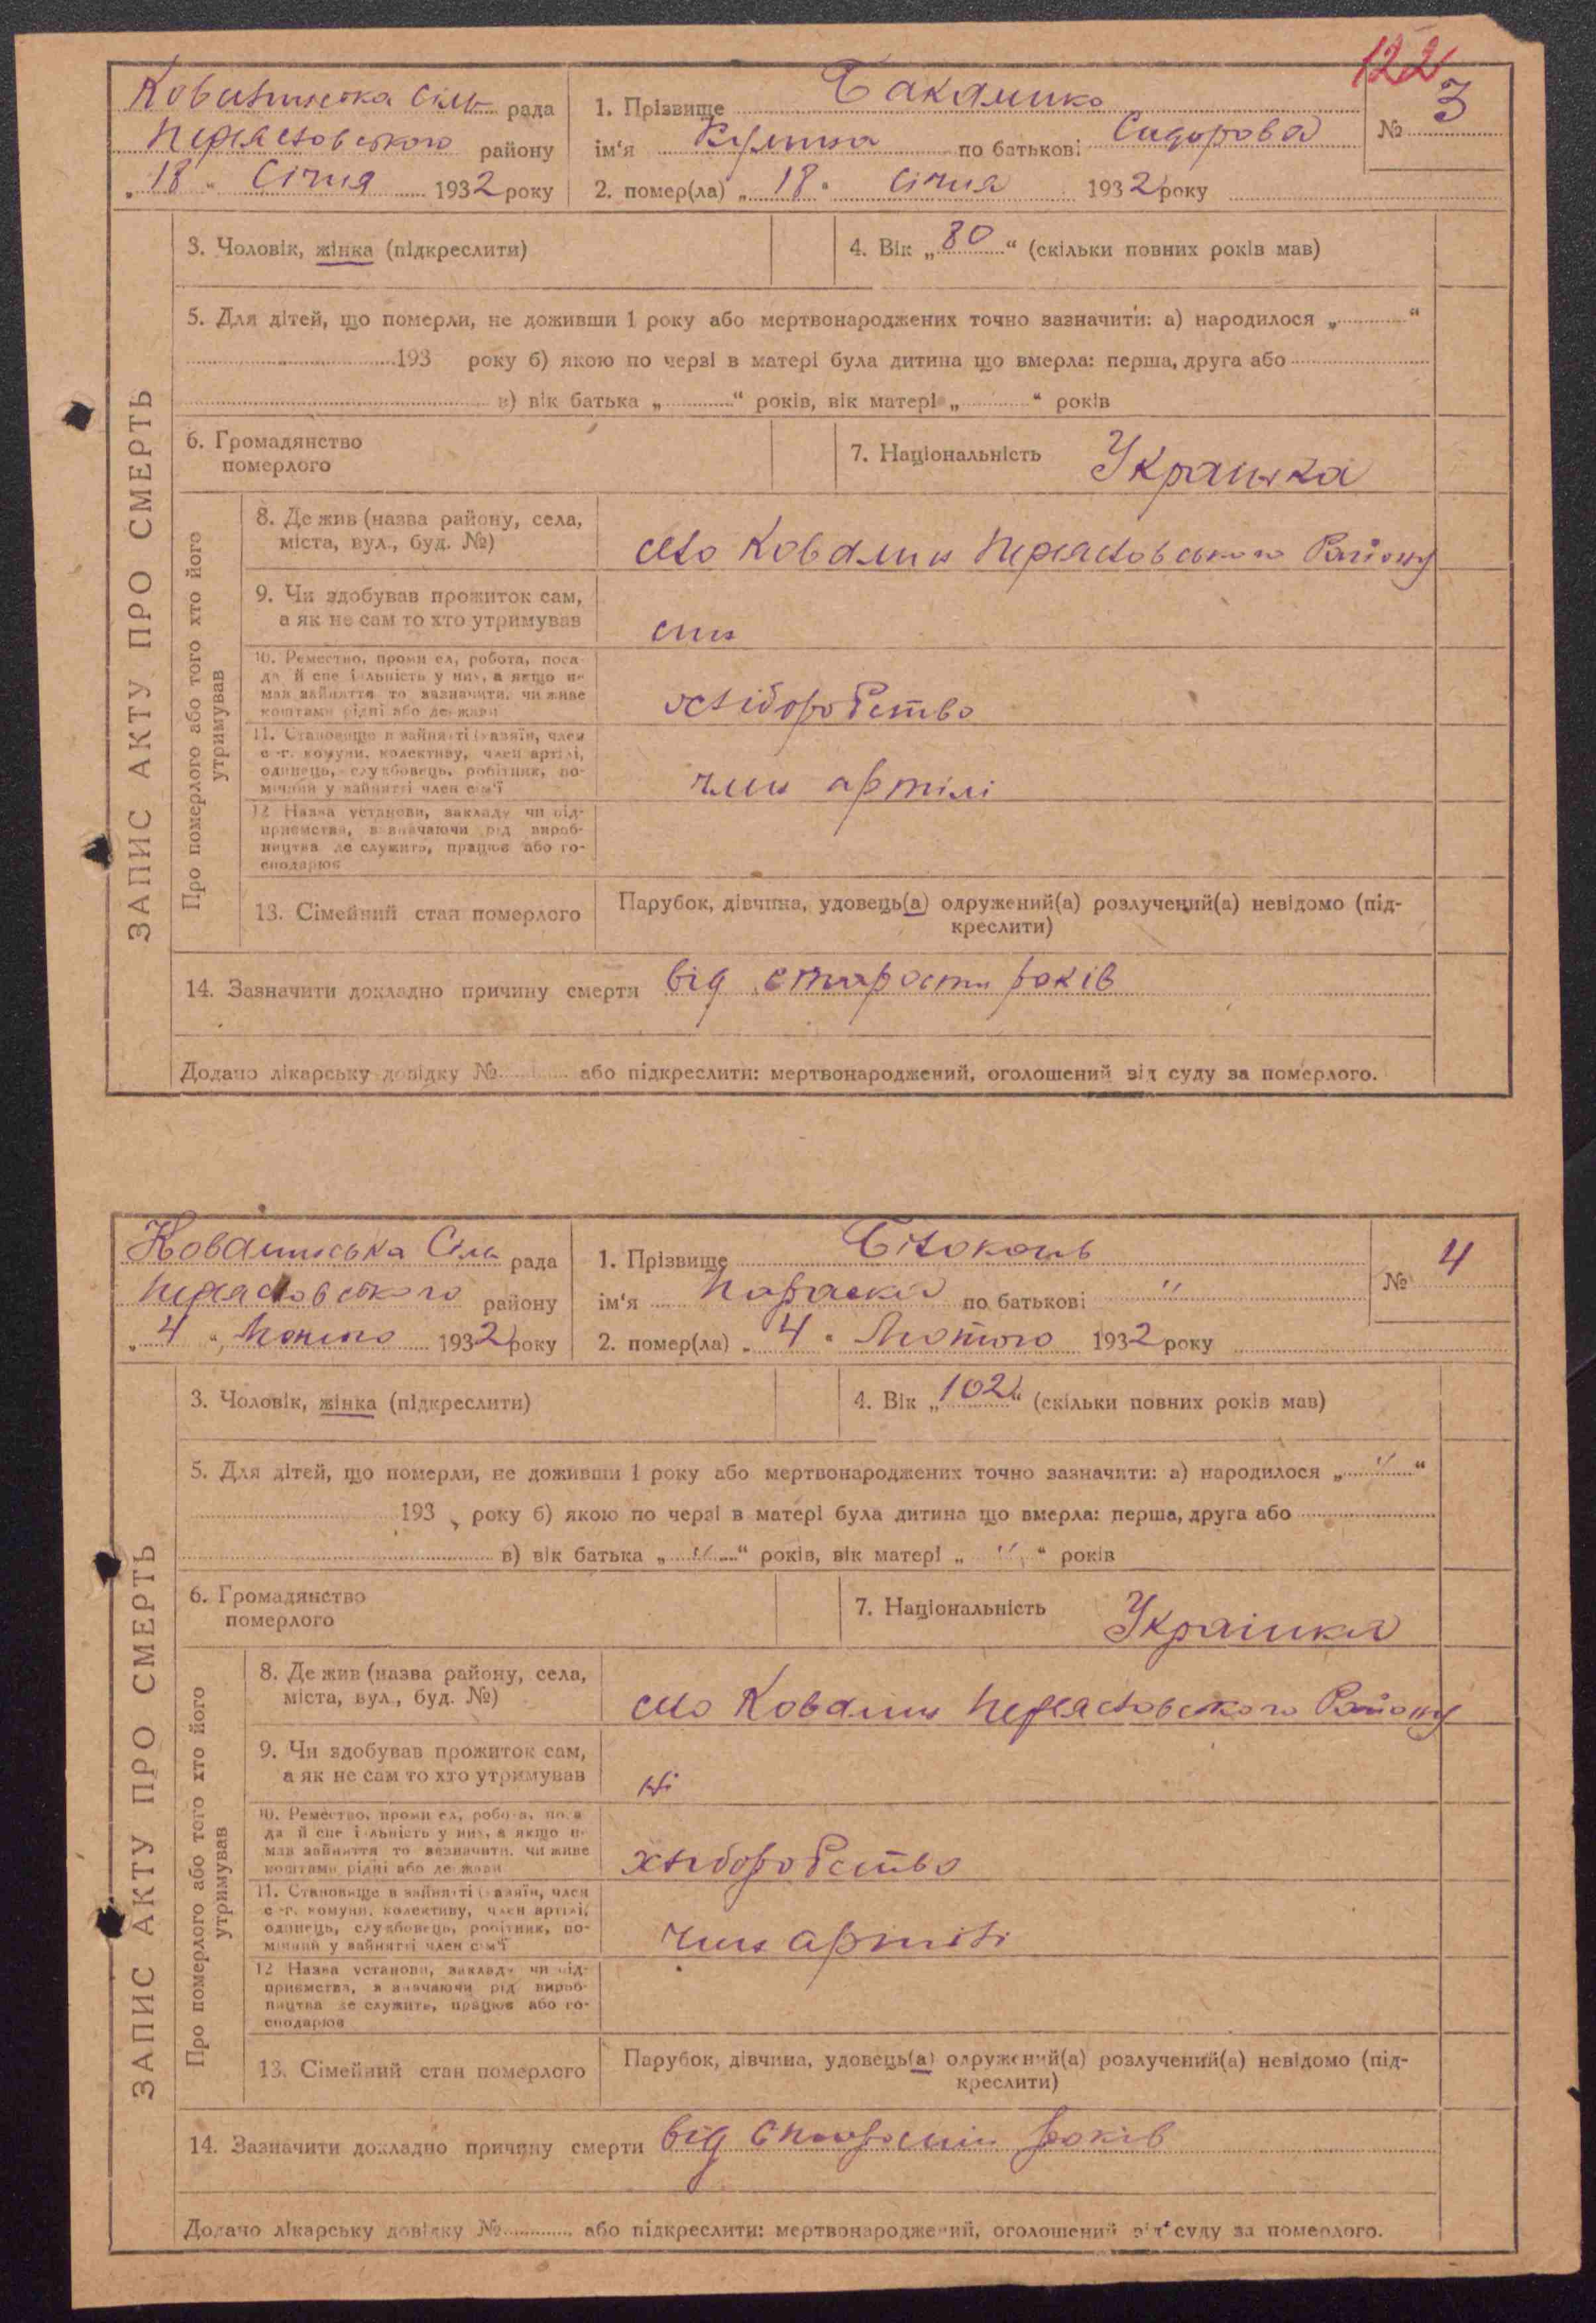 122
Ковалинська Сіль рада
Переяславського району
„ 18 “ Січня 1932 року
1. Прізвище Бакалинко
ім‘я по батькові Сидорова
2. помер(ла) „ 18 “ січня 1932 року
№ 3
ЗАПИС АКТУ ПРО СМЕРТЬ
3. Чоловік, жінка (підкреслити)
4. Вік „ 80 “ (скільки повних років мав)
5. Для дітей, що померли, не доживши 1 року або мертвонароджених точно зазначити: а) народилося „ “
193 року б) якою по черзі в матері була дитина що вмерла: перша, друга або
в) вік батька „ “ років, вік матері „ “ років
6. Громадянство
померлого
7. Національність Українка
Про померлого або того хто його
утримував
8. Де жив (назва району, села,
міста, вул., буд. №)
село Ковалин Переяславського Району
9. Чи здобував прожиток сам,
а як не сам то хто утримував
син
10. Ремество, промисел, робота, поса-
да й спеціяльність у них, а якщо не
мав зайняття то зазначити, чи живе
коштами рідні або держави
хліборобство
11. Становище в зайнятті (хазяїн, член
с.-г. комуни, колективу, член артілі,
одинець, службовець, робітник, по-
мічний у зайнятті член сім‘ї
член артілі
12. Назва установи, закладу чи під-
приємства, зазначаючи рід вироб-
ництва де служить, працює або го-
сподарює
13. Сімейний стан померлого
Парубок, дівчина, удовець(а) одружений(а) розлучений(а) невідомо (під-
креслити)
14. Зазначити докладно причину смерти від старости років
Додано лікарську довідку № або підкреслити: мертвонароджений, оголошений від суду за померлого.
Ковалинська Сіль рада
Переяславського району
„ 4 “ Лютого 1932 року
1. Прізвище Білоконь
ім‘я Параска по батькові "
2. помер(ла) „ 4 “ Лютого 1932 року
№ 4
ЗАПИС АКТУ ПРО СМЕРТЬ
3. Чоловік, жінка (підкреслити)
4. Вік „ 102 “ (скільки повних років мав)
5. Для дітей, що померли, не доживши 1 року або мертвонароджених точно зазначити: а) народилося „ " “
193 року б) якою по черзі в матері була дитина що вмерла: перша, друга або
в) вік батька „ " “ років, вік матері „ " “ років
6. Громадянство
померлого
7. Національність Українка
Про померлого або того хто його
утримував
8. Де жив (назва району, села,
міста, вул., буд. №)
село Ковалин Переяславского Району
9. Чи здобував прожиток сам,
а як не сам то хто утримував
ні
10. Ремество, промисел, робота, поса-
да й спеціяльність у них, а якщо не
мав зайняття то зазначити, чи живе
коштами рідні або держави
хліборобство
11. Становище в зайнятті (хазяїн, член
с.-г. комуни, колективу, член артілі,
одинець, службовець, робітник, по-
мічний у зайнятті член сім‘ї
член артілі
12. Назва установи, закладу чи під-
приємства, зазначаючи рід вироб-
ництва де служить, працює або го-
сподарює
13. Сімейний стан померлого
Парубок, дівчина, удовець(а) одружений(а) розлучений(а) невідомо (під-
креслити)
14. Зазначити докладно причину смерти від старости років
Додано лікарську довідку № або підкреслити: мертвонароджений, оголошений від суду за померлого.